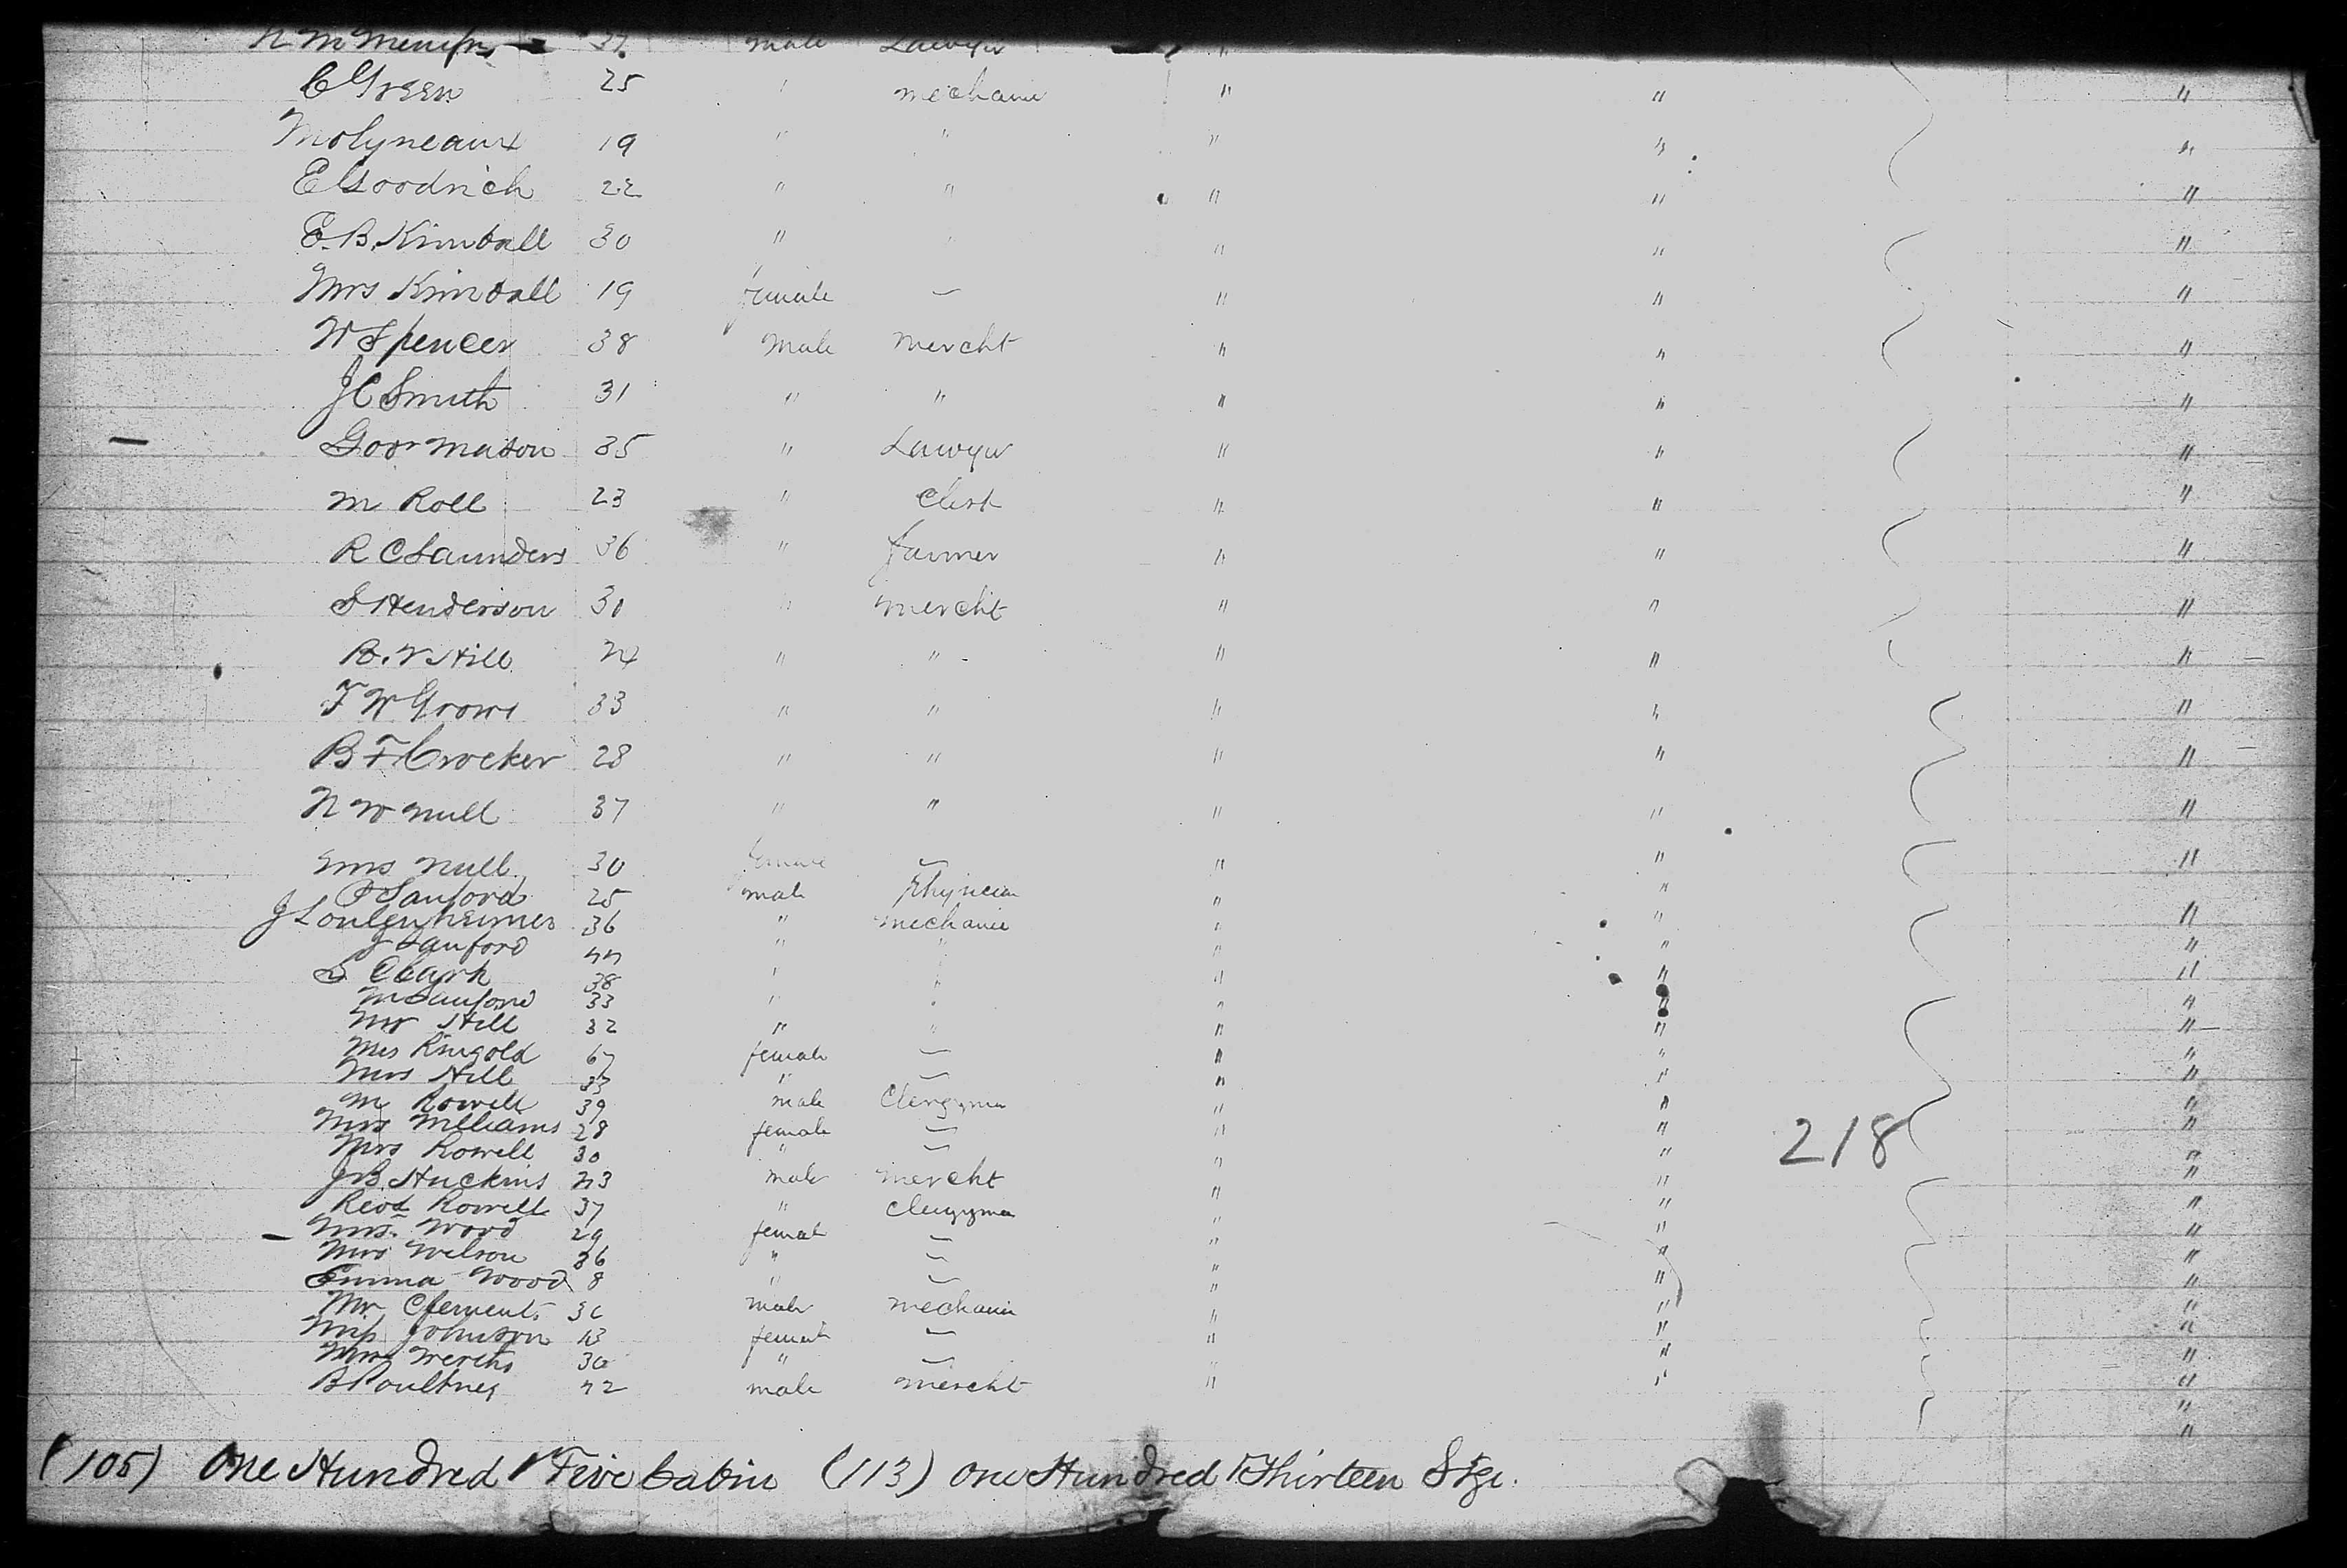 37 male Lawyer "
C Green 25 " mechanic " " "
Molyneaux 19 " " " " "
E Goodrich 22 " " " " "
E. B. Kimball 30 " " " "
Mrs Kimball 19 female — " " "
W Spencer 38 Male mercht " " "
J C Smith 31 " " " " "
Govr Mason 35 " Lawyer " " "
M Roll 23 " Clerk " " "
R C Saunders 36 " farmer " " "
S Henderson 30 " mercht " " "
B. V Hill 24 " " " " "
F W Grows 33 " " " " "
B F Crocker 28 " " " " "
N W Null 37 " " " " "
Mrs Null 30 female — " " "
P Sanford 25 male Physician " "
J 36 " mechanic " " "
J Sanford 44 " " " " "
S Clark 38 " " " " "
M Sanford 33 " " " " "
Mr Hill 32 " " " " "
Mrs Ringold 67 female — " " "
Mrs Hill 33 " — " " "
M Rowell 39 male Clergyman " " "
Mrs Williams 28 female — " " "
218
Mrs Rowell 30 " — " " "
J B. Huckins 43 male mercht " " "
Revd Rowell 37 " Clergyman " " "
Mrs. Wood 29 female — " " "
Mrs Wilson 36 " — " " "
Emma Wood 8 " — " " "
Mr Clement 30 male mechanic " " "
Miss Johnson 43 female — " " "
Mrs 30 " — " " "
B Poultney 42 male mercht " " "
"
"
(105) One Hundred & Five Cabin (113) One Hundred & Thirteen Stge.